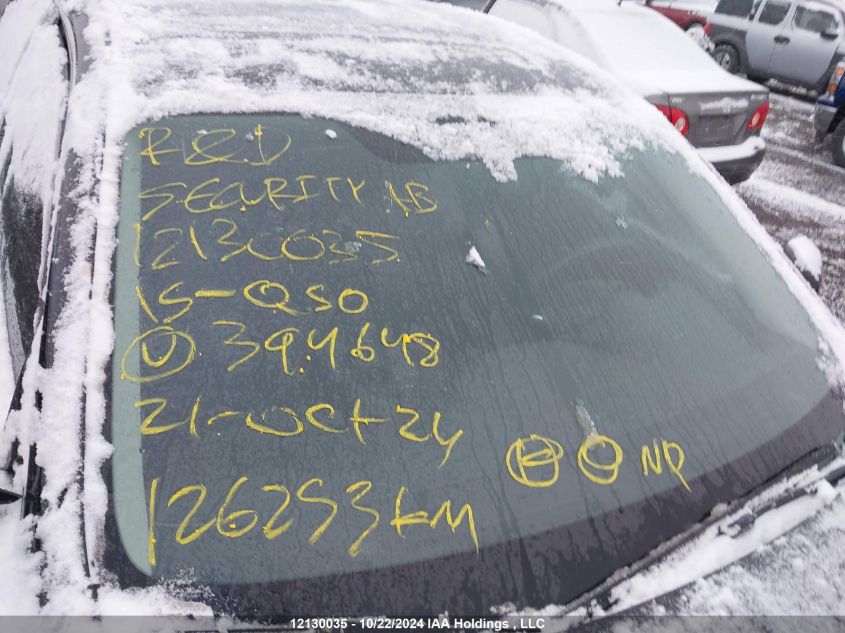 R&D
SECURITY AB
12130035
15-Q50
V 394648
21-OCT 24
126253 KM
12130035 - 10/22/2024 IAA Holdings , LLC